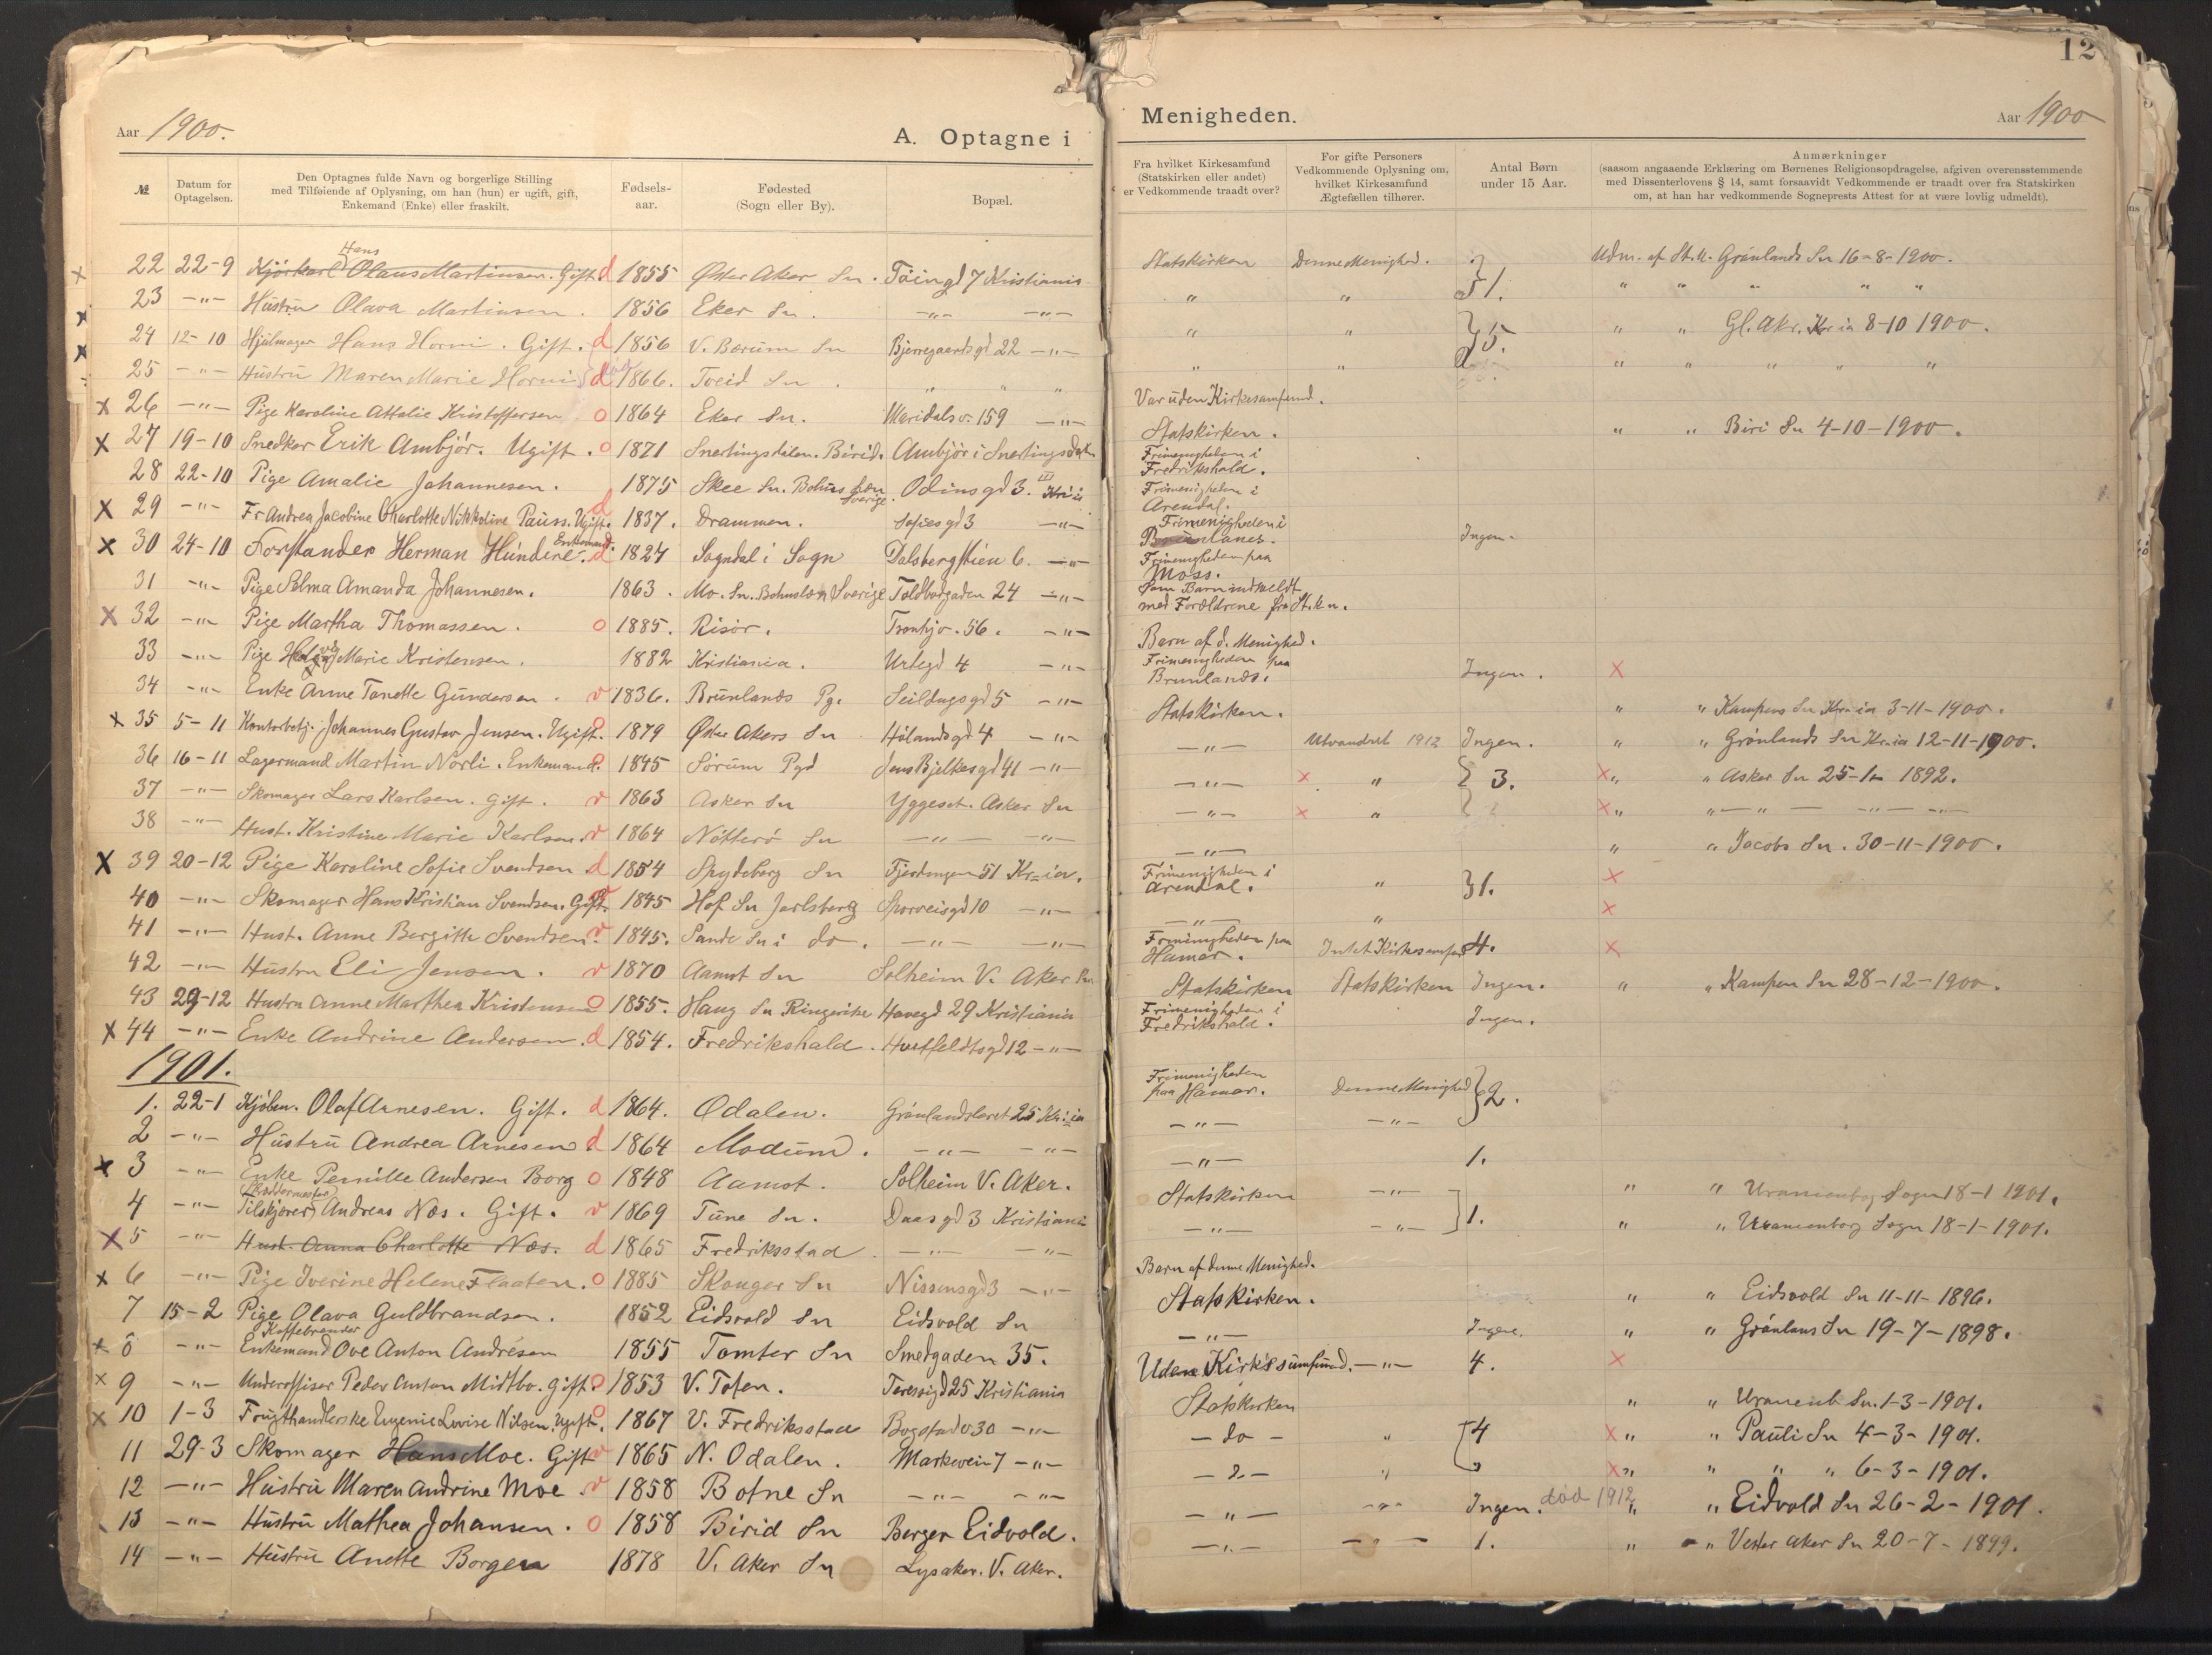 Aar 1900.
A. Optagne i
№
Datum for Optagelsen.
Den Optagnes fulde Navn og borgerlige Stilling
med Tilføiende af Oplysning, om han (hun) er ugift, gift,
Enkemand (Enke) eller fraskilt.
Fødsels-
aar.
Fødested
(Sogn eller By).
Bopæl.
Hans
22 22-9 Kjörkarl Olaus Martinsen. Gift. d 1855 Öster Aker Sn. Töiengd 7 Kristiania
23 -"- Hustru Olava Martinsen. 1856 Eker Sn. -"- -"-
24 12-10 Hjulmager Hans Horni. Gift. d 1856 V. Bærum Sn Bjerregaardsgd 22 -"-
25 -"- Hustru Maren Marie Horni d 1866. Tveid Sn. " " "
26 -"- Pige Karoline Attalie Kristoffersen o 1864 Eker Sn. Maridalsv. 159 -"-
27 19-10 Snedker Erik Ambjör. Ugift. o 1871 Snertingsdalen. Birid. Ambjör i Snertingsdalen
28 22-10 Pige Amalie Johannesen. 1875 Skee Sn. Bohus Län Sverige. Odinsgd 3. III Kr:ia
29 -"- Fr Andrea Jacobine Charlotte Nikkoline Pauss. Ugift. d 1837. Drammen. Sofiesgd 3 -"-
30 24-10 Forstander Herman Hundere. Enkemand. d 1827 Sogndal i Sogn Dalsbergstien 6. -"-
31 -"- Pige Selma Amanda Johannesen. 1863. Mo. Sn. Bohuslæn Sverige Toldbodgaden 24 -"-
32 -"- Pige Martha Thomassen. o 1885. Risör. Tronhjv. 56. -"-
33 -"- Pige Helga Marie Kristensen. 1882 Kristiania. Urtegd 4 -"-
34 -"- Enke Anne Tanette Gundersen. v 1836. Brunlands Pg. Seildugsgd 5 -"-
35 5-11 Kontorbetj. Johannes Gustav Jensen. Ugift. o 1879 Öster Akers Sn Hölandsgd 4 -"-
36 16-11 Lagermand Martin Norli. Enkemand. o 1845 Sörum Pgd Jens Bjelkesgd 41 -"-
37 -"- Skomager Lars Karlsen. gift. v 1863 Asker Sn Yggeset. Asker Sn
38 -"- Hust. Kristine Marie Karlsen. v 1864 Nötterö Sn -"- -"-
39 20-12 Pige Karoline Sofie Svendsen d 1854 Spydeberg Sn Fjerdingen 51 Kr=ia.
40 -"- Skomager Hans Kristian Svendsen. Gift. v 1845 Hof Sn Jarlsberg Sporveisgd 10 -"-
41 -"- Hust. Anne Bergitte Svendsen. v 1845. Sande Sn i do. -"- -"-
42 -"- Hustru Eli Jensen. v 1870 Aamot Sn Solheim V. Aker Sn
43 29-12 Hustru Anne Marthea Kristensen o 1855. Haug Sn Ringerike Havegd 29 Kristiania
44 -"- Enke Andrine Andersen. d 1854. Fredrikshald. Huitfeldtsgd 12 -"-
1901.
1. 22-1 Kjöbm. Olaf Arnesen. Gift. d 1864. Odalen. Grönlandsleret 25 Kr:ia
2 -"- Hustru Andrea Arnesen d 1864 Modum. -"- -"-
3 -"- Enke Pernille Andersen Borg o 1848 Aamot. Solheim V. Aker.
(Skreddermester)
4 -"- Tilskjærer Andreas Næs. Gift. v 1869 Tune Sn. Daasgd 3 Kristiania
5 -"- Hust. Anna Charlotte Næs. d 1865 Fredriksstad. -"- -"-
6 -"- Pige Iverine Helene Flaaten. o 1885 Skouger Sn Nissensgd 3 -"-
7 15-2 Pige Olava Guldbrandsen. 1852 Eidsvold Sn Eidsvold Sn
Kaffebrænder
8 -"- Enkemand Ove Anton Andresen 1855 Tomter Sn Smedgaden 35.
9 -"- Underoffiser Peder Anton Midtbo. gift. o 1853 V. Toten. Teresesgd 25 Kristiania
10 1-3 Frugthandlerske Eugenie Lovise Nilsen. Ugift. o 1867 V. Fredriksstad Bogstadv 30 -"-
11 29-3 Skomager Hans Moe. Gift v 1865 N. Odalen. Markvein 7 -"-
12 -"- Hustru Maren Andrine Moe. v 1858 Botne Sn -"- -"-
13 -"- Hustru Mathea Johansen. o 1858 Birid Sn Berger Eidvold.
14 -"- Hustru Anette Borgen 1878 V. Aker Sn Lysaker. V. Aker.
12
Menigheden.
Aar 1900
Fra hvilket Kirkesamfund
(Statskirken eller andet)
er Vedkommende traadt over?
For gifte Personers
Vedkommende Oplysning om,
hvilket Kirkesamfund
Ægtefællen tilhører.
Antal Børn
under 15 Aar.
Anmærkninger
(saasom angaaende Erklæring om Børnenes Religionsopdragelse, afgiven overensstemmende
med Dissenterlovens § 14, samt forsaavidt Vedkommende er traadt over fra Statskirken
om, at han har vedkommende Sogneprests Attest for at være lovlig udmeldt).
Statskirken Denne Menighed. Udm. af St.K. Grönlands Sn 16-8-1900.
" " 1. " " " " "
" " 5. " " Gl. Akr. Kr ia 8-10 1900.
" " " " " " "
Var uden Kirkesamfund.
Statskirken. " " Biri Sn 4-10-1900.
Frimenigheden i
Fredrikshald.
Frimenigheden i
Arendal.
Frimenigheden i
Brunlanes. Ingen.
Frimenigheden paa
Moss.
Som Barn indmeldt
med Forældrene fra St.k n.
Barn af d. Menighed.
Frimenigheden paa
Brunlands. Ingen. x
Statskirken. " " Kampens Sn Kr-ia 3-11-1900.
-"- Utvandret 1912 Ingen. " " Grönlands Sn Kr.ia 12-11-1900.
-"- x " 3. x " " Asker Sn 25-1- 1892.
-"- x " x " " - " - -"- -"-
-"- " " Jacobs Sn. 30-11-1900.
Frimenigheden i
Arendal. " 1. x
-"- " x
Frimenigheden paa
Hamar. Intet Kirkesamfund 4. x
Statskirken Statskirken Ingen. " " Kampen Sn 28-12-1900.
Frimenigheden i
Fredrikshald. Ingen.
Frimenigheden
paa Hamar. Denne Menighed 2.
-"- -"-
-"- 1.
Statskirken -"- " " Uranienborg Sogn 18-1 1901.
-"- -"- 1. " " Uranienborg Sogn 18-1-1901.
Barn af denne Menighed.
Statskirken. " " Eidsvold Sn 11-11-1896.
-"- Ingen. " " Grönlans Sn 19-7-1898.
Uden Kirkesamfund. -"- 4. x
Statskirken " " Uranienb Sn. 1-3-1901.
- do - " 4 x " " Pauli Sn 4-3-1901.
-"- " x " " " " 6-3-1901.
-"- -"- Ingen. död 1912 " " Eidvold Sn 26-2-1901.
-"- -"- 1. " " Vester Aker Sn 20-7-1899.